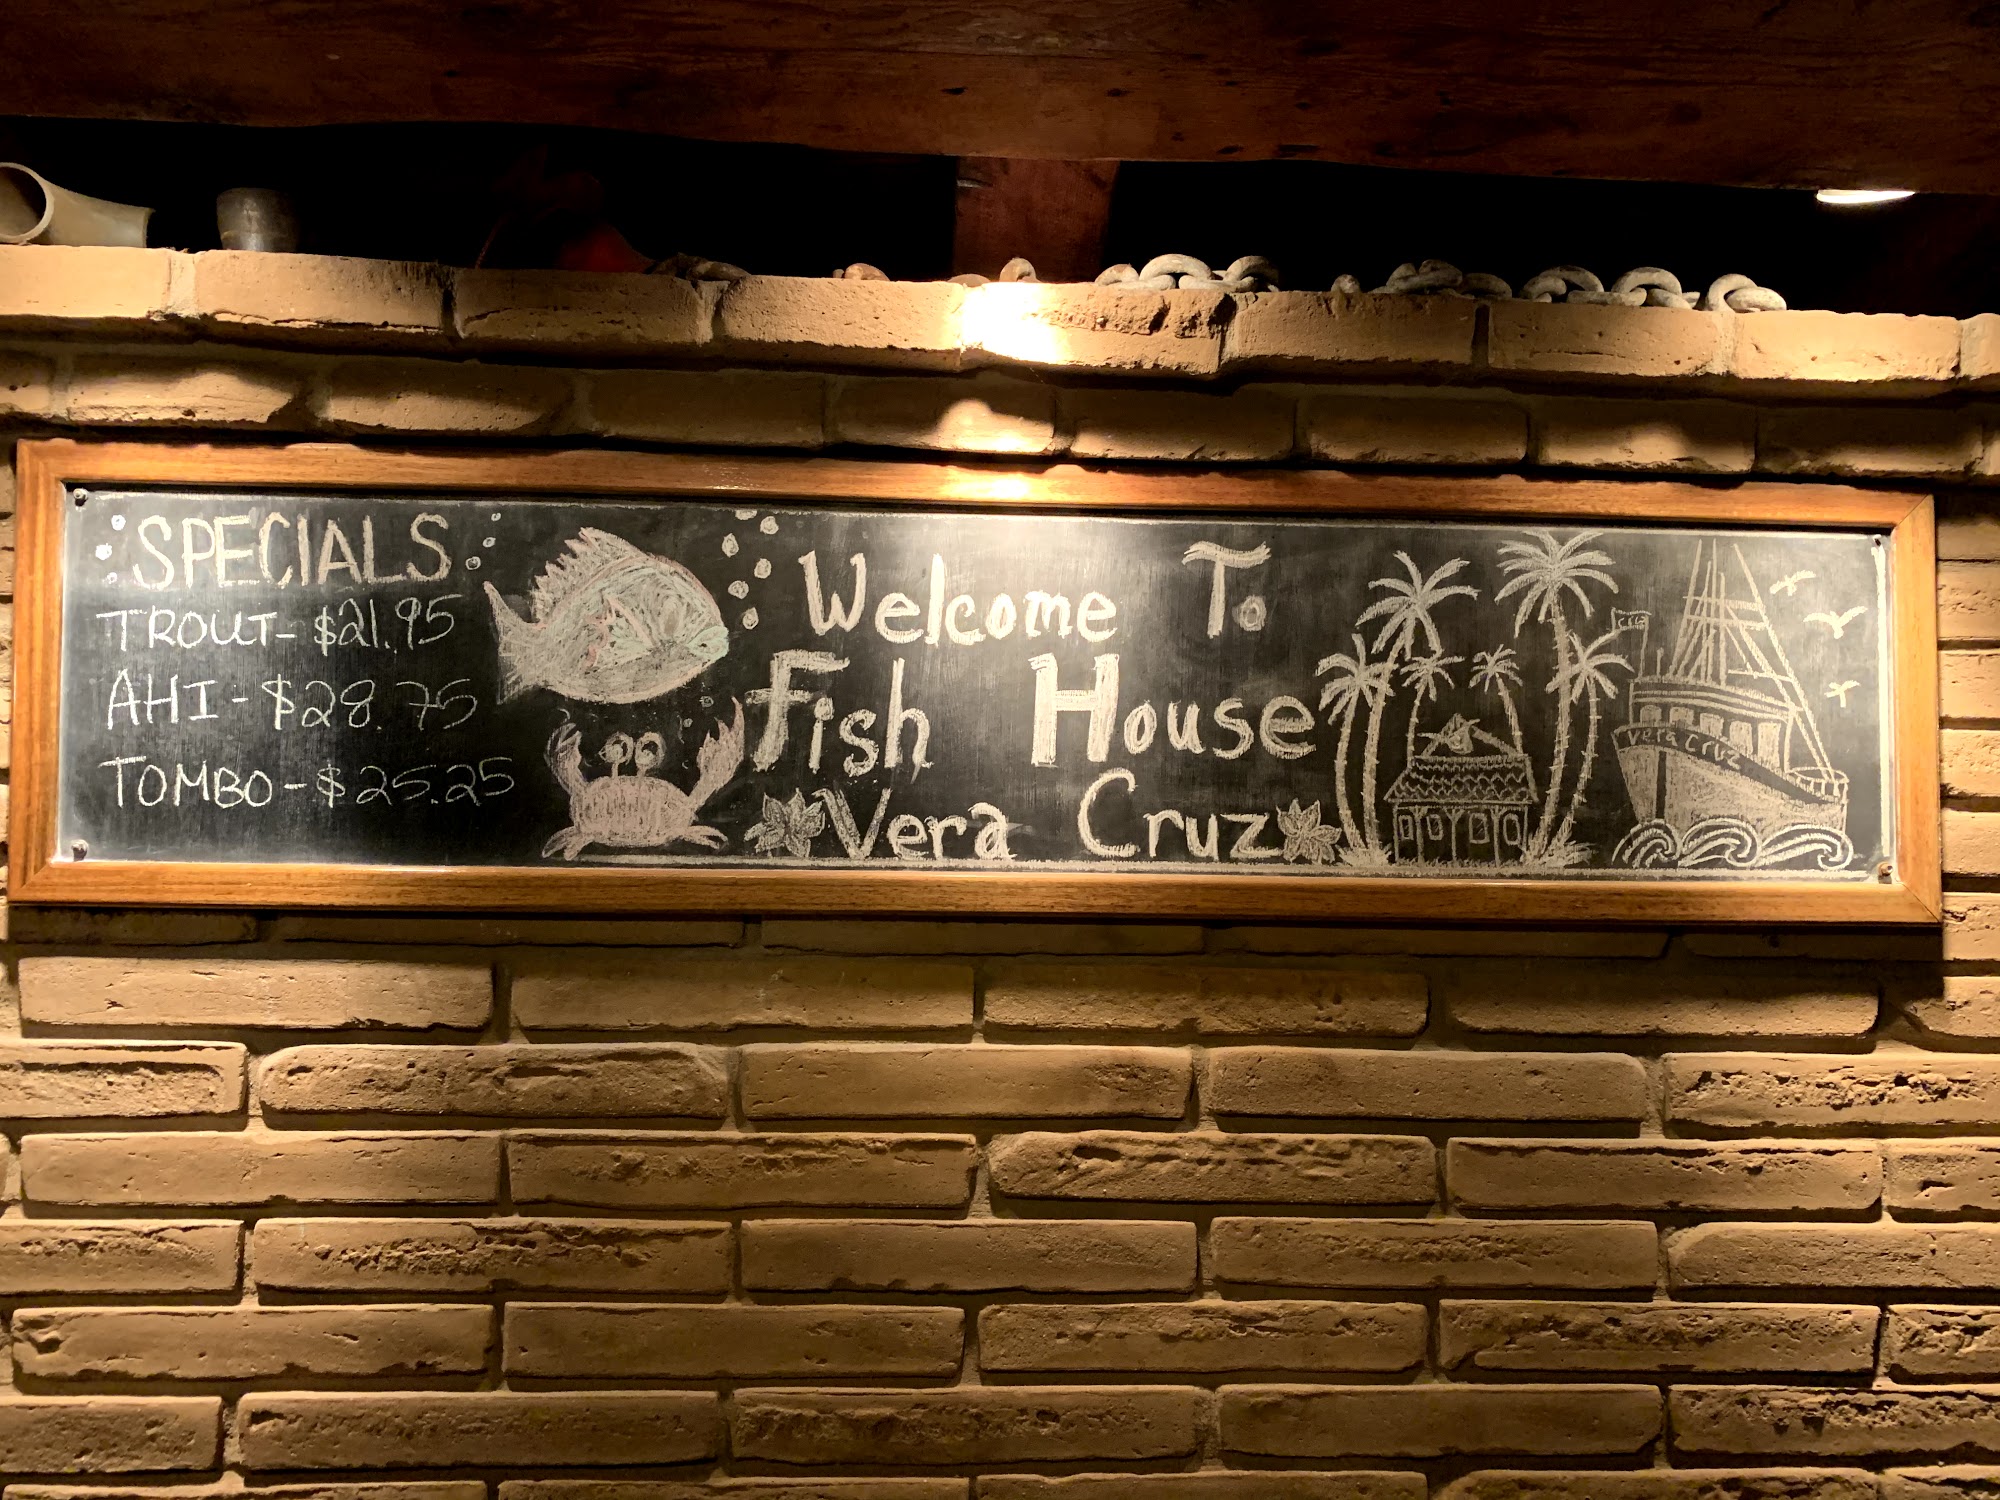 SPECIALS
TROUT - $21.95
AHI - $28.75
TOMBO - $25.25
Welcome To
Fish House
Vera Cruz
Vera Cruz